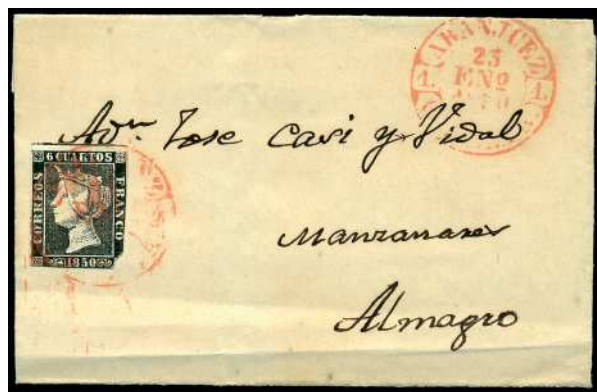 ARANJUEZ
1.
25
ENO
1850
1.
Adn. Jose Cavi y Vidal
6 CUARTOS
CORREOS
FRANCO
1850
Manzanares
Almagro